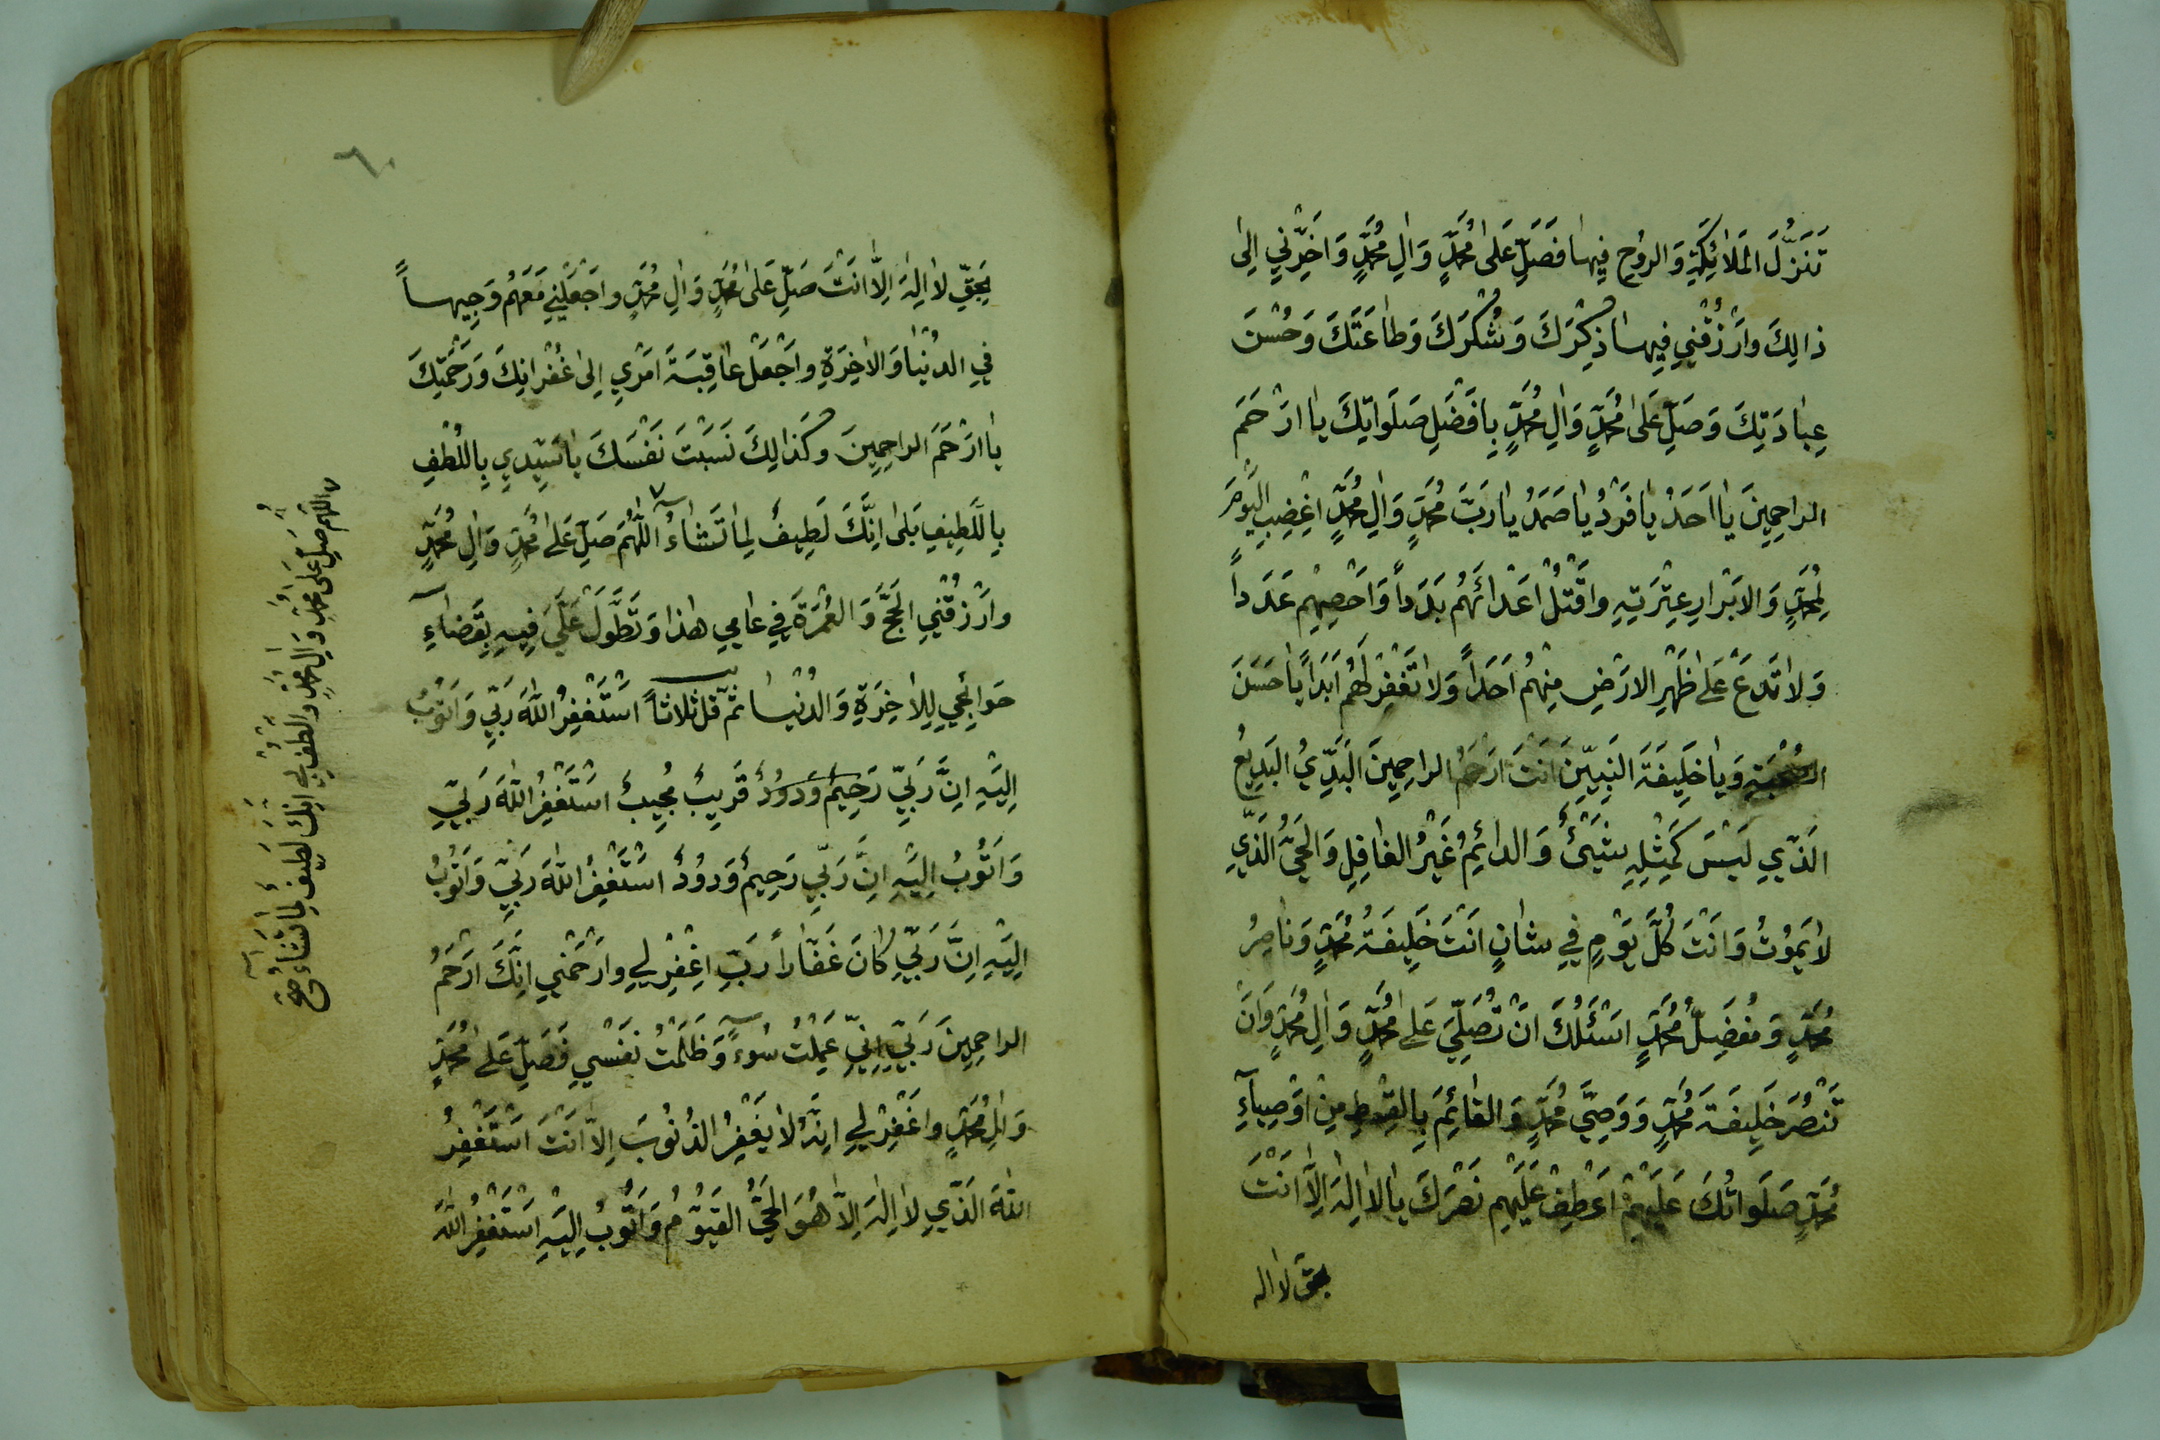 تَنَزُّلَ المَلائِكَةِ وَالروُحِ فِيها فَصَلِّ عَلى مُحَمَّدٍ وَالِ مُحَمَّدٍ وَاَخِّرْنِي اِلى
ذالِكَ وارْزُقْنِي فِيها ذِكْرَكَ وَشُكْرَكَ وَطاعَتَكَ وَحُسْنَ
عِبادَتِكَ وَصَلِّ عَلى مُحَمَّدٍ وَالِ مُحَمَّدٍ بِافَضَلِ صَلَواتِكَ يا ارْحَمَ
الراحِمِينَ يا اَحَدُ يا فَرْدُ يا صَمَدُ يا رَبَّ مُحَمَّدٍ وَالِ مُحَمَّدٍ اغِضِبِ اليَوْمَ
لِمُحَمَّدٍ وَالابَرْارِ عِتْرَتِهِ واقْتُلْ اعَدْائَهُم بَدَداً وَاحَصِهِم عَدَداً
وَلا تَدَعْ عَلى ظَهْرِ الارَضِ مِنْهُم اَحَداً وَلا تَغْفِرْ لَهُم اَبَدَاً يا حَسَنَ
الصُحْبَةِ وَيا خَلِيفَةَ النَبِيّينَ انَتَ ارَحَمُ الراحِمِينَ البَدِّيُ البَدِيعُ
الَذّيِ لَيْسَ كَمِثْلِهِ شَيْئُ وَالدائِمُ غَيْرُ الغافِلِ وَالحَيُّ الَذّيِ
لا يَموُتُ وَانَتَ كُلَّ يَوْمٍ فيِ شانٍ انَتَ خَلِيفَةُ مُحَمَّدٍ وَناصِرُ
مُحَمَّدٍ وَمُفَضِلُّ مُحَمَّدٍ اسْئَلُكَ انَ تُصَلِّيَ عَلى مُحَمَّدٍ وَالِ مُحَمَّدٍ وَانَ
تَنْصُرَ خَلِيفَةَ مُحَمَّدٍ وَوَصِيَّ مُحَمَّدٍ وَالقائِمَ بِالقِسْطِ مِنْ اوَصِياءِ
مُحَمَّدٍ صَلَواتُكَ عَلَيْهِمْ اعَطِفْ عَلَيْهِم نَصْرَكَ يا لا اِلهَ اِلّا انَتَ
بحق لا اله
٦٠
بِحَقِّ لا اِلهَ اِلّا انَتَ صَلِّ عَلى مُحَمَّدٍ وَالِ مُحَمَّدٍ واجَعَلْنِي مَعَهُم وَجِيهاً
فيِ الدُنْيا وَالاخِرَةِ واجَعَلْ عاقِبَةَ امَرْيِ اِلى غُفْرانِكَ وَرَحْمَتِكَ
يا ارَحَمَ الراحِمِينَ وكَذالِكَ نَسَبْتَ نَفْسَكَ يا سَيّدِي بِاللُطْفِ
بِاللَطِيفِ بَلى اِنَّكَ لَطِيفُ لِما تَشاءُ اللّهُمَ صَلِّ عَلى مُحَمَّدٍ وَالِ مُحَمَّدٍ
وارْزُقْنيِ الحَجَّ وَالعُمْرَةَ فيِ عامِي هذا وَتَطَوَّلْ عَلَيَّ فِيهِ بِقَضاءِ
حَوائِجيِ لِلاخِرَةِ وَالدُنْيا ثم قل ثلاثاً اسْتَغْفِرُ اللهَ رَبّيِ وَاتَوُبُ
اِلَيْهِ اِنَّ رَبّيِ رَحِيمُ وَدوُدُ قَرِيبُ مُجِيبُ اسْتَغْفِرُ اللهَ رَبّيِ
وَاتَوُبُ اِلَيْهِ اِنَّ رَبّيِ رَحِيمُ وَدوُدُ اسْتَغْفِرُ اللهَ رَبّيِ وَاتَوُبُ
اِلَيْهِ اِنَّ رَبّيِ كانَ غَفّاراً رَبِّ اغِفِرْ ليِ وارْحَمْنيِ اِنَّكَ ارَحَمُ
الراحِمِينَ رَبّيِ اِنيِّ عَمِلْتُ سُوءً وَظَلَمْتُ نَفْسيِ فَصَلِّ عَلى مُحَمَّدٍ
وَالِ مُحَمَّدٍ واغَفِرْ ليِ اِنَّهُ لا يَغْفِرُ الذُنوُبَ اِلاّ انَتَ اسْتَغْفِرُ
اللهَ الَذّيِ لا اِلهَ اِلاّ هُوَ الحَيُّ القَيّوُمُ وَاتَوُبُ اِلَيْهِ اسْتَغْفِرُ اللهَ
اللّهم صَلِّ عَلى مُحَمَّدٍ وَالِ مُحَمَّدٍ والْطُفْ ليِ اِنَّكَ لَطِيفُ لِما تَشاءُ صح